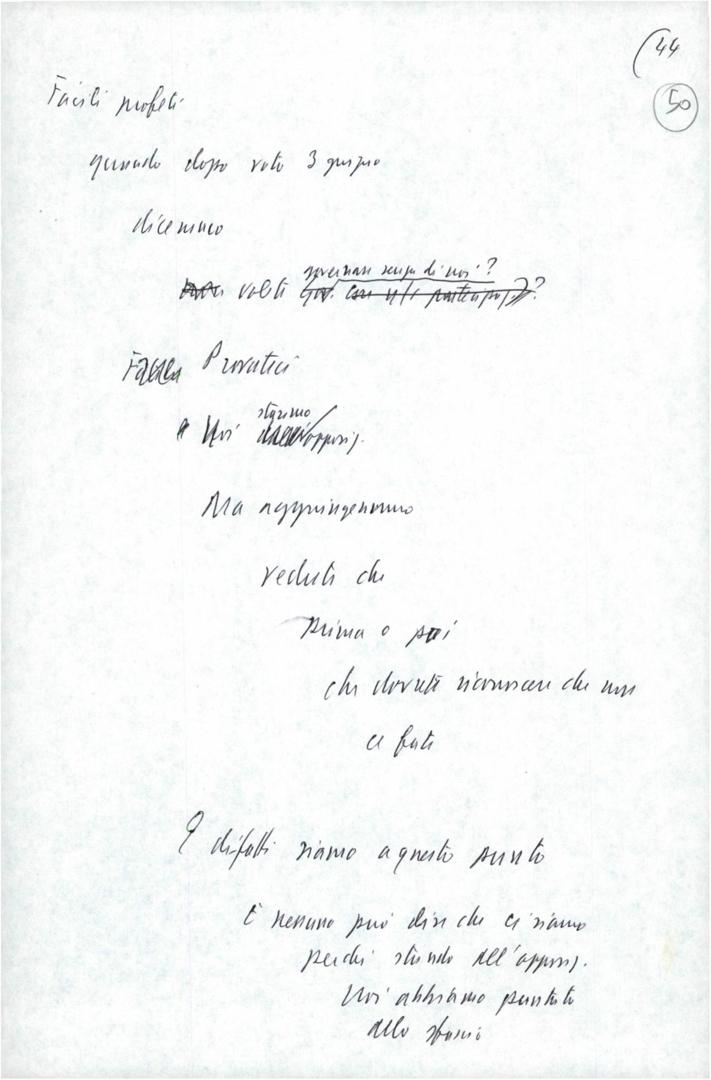 (44
50
Facili profeti
quando dopo voto 3 giugno
dicemmo
governare senza di noi?
volete gov. con n/s partecipaz.?
Provateci
staremo
Noi all'opposiz.
Ma aggiungemmo
vedrete che
prima o poi
che dovrete riconoscere che non
ce fate
E difatti siamo a questo punto
E nessuno può dire che ci siamo
perché stando all'opposiz.
Noi abbiamo puntato
allo sfascio